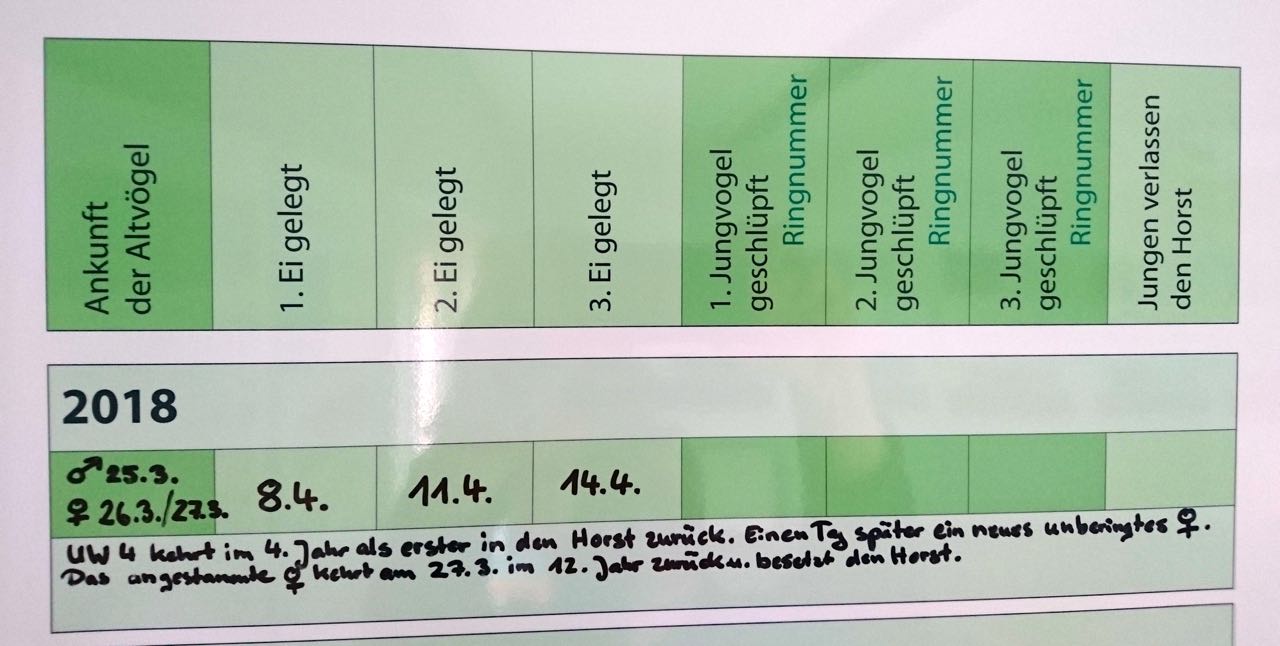 Ankunft
der Altvögel
1. Ei gelegt
2. Ei gelegt
3. Ei gelegt
1. Jungvogel
geschlüpft
Ringnummer
2. Jungvogel
geschlüpft
Ringnummer
3. Jungvogel
geschlüpft
Ringnummer
Jungen verlassen
den Horst
2018
♂ 25.3.
♀ 26.3./27.3.
8.4.
11.4.
14.4.
UW 4 kehrt im 4. Jahr als erster in den Horst zurück. Einen Tag später ein neues unberingtes ♀.
Das angestammte ♀ kehrt am 27.3. im 12. Jahr zurück u. besetzt den Horst.